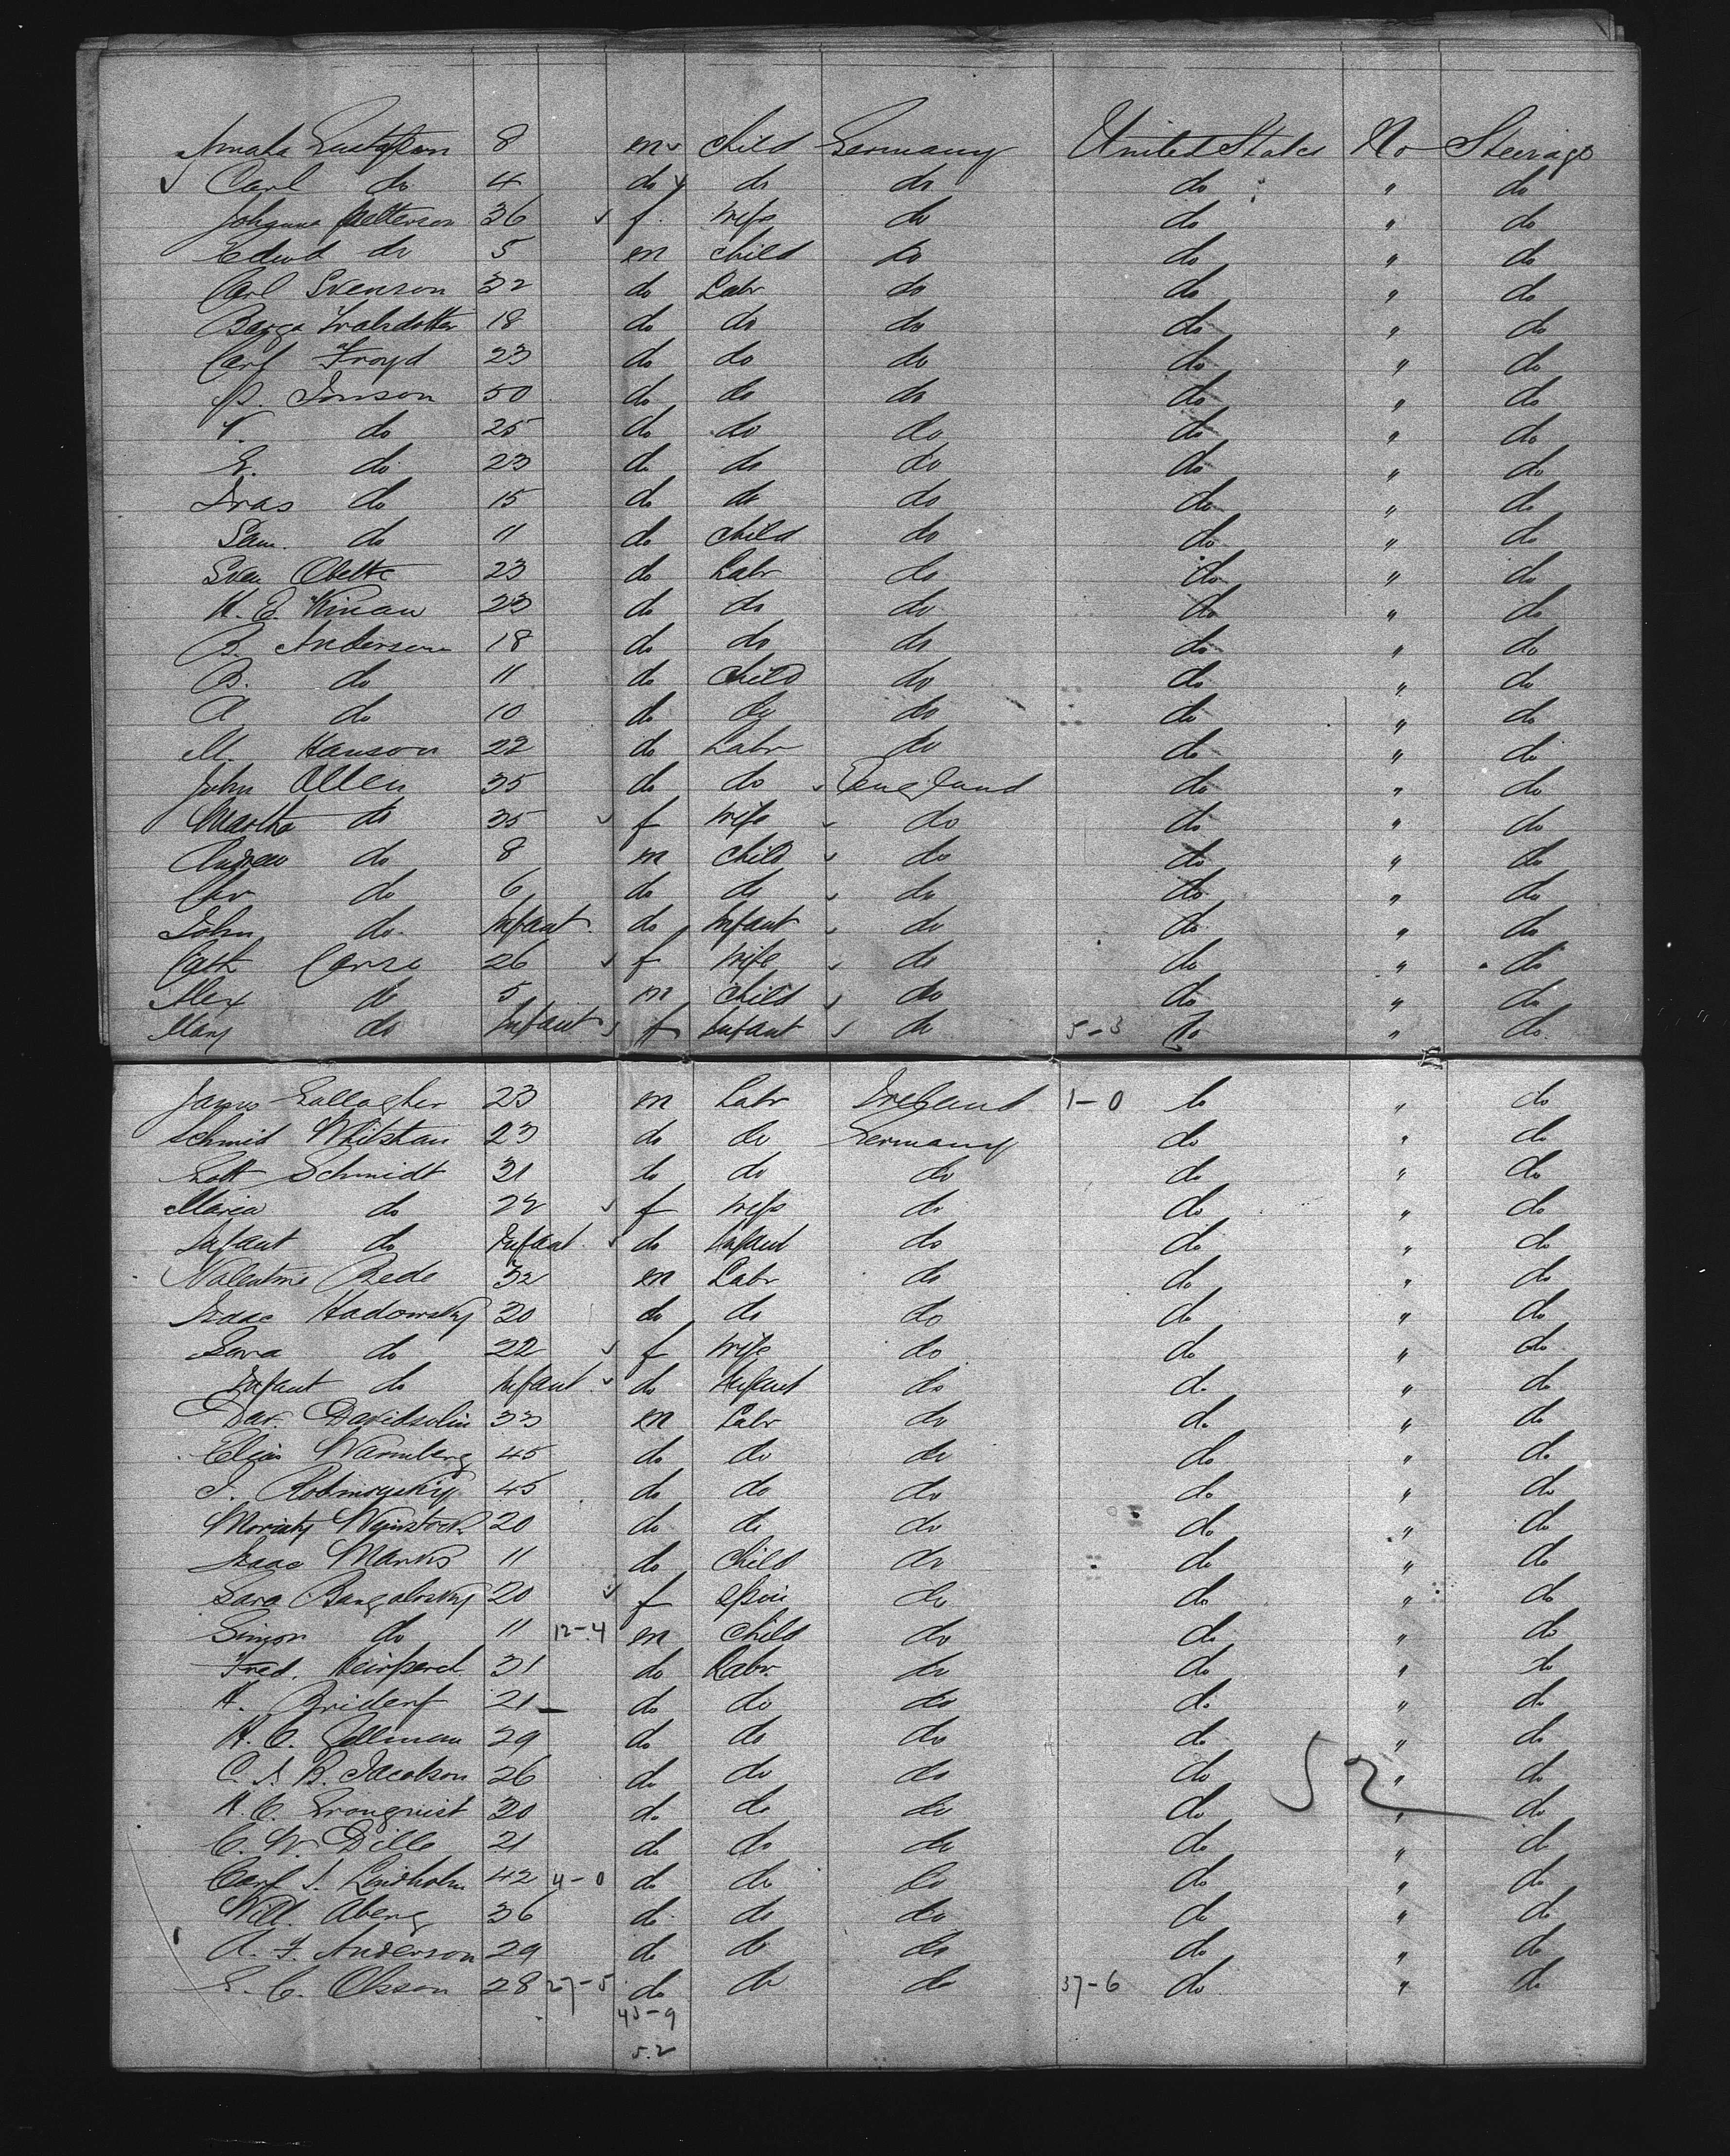 Gustafson 8 m child Germany United States No Steerage
Carl do 4 do do do do " do
Johanna Petterson 36 f wife do do " do
Edwd do 5 m child do do " do
Carl Svenson 32 do Labr do do " do
18 do do do do " do
Carl Froyd 23 do do do do " do
P. Jonson 50 do do do do " do
do 25 do do do do " do
E. do 23 do do do do " do
do 15 do do do do " do
Sam. do 11 do child do do " do
Sven 23 do Labr do do " do
H. E. 23 do do do do " do
B. Anderson 18 do do do do " do
B. do 11 do child do do " do
A do 10 do do do do " do
M. Hanson 22 do Labr do do " do
John Allen 35 do do England do " do
Martha do 35 f wife do do " do
Andrew do 8 m child do do " do
do 6 do do do do " do
John do Infant do Infant do do " do
Cath 26 f wife do do " do
Alex do 5 m child do do " do
Mary do Infant f Infant do 5-3 do " do
James Gallagher 23 m Labr Ireland 1-0 do " do
Schmid 23 do do Germany do " do
Gott Schmidt 31 do do do do " do
Maria do 22 f wife do do " do
Infant do Infant do Infant do do " do
Valentine Bede 32 m Labr do do " do
Isaac Hadowsky 20 do do do do " do
Sara do 22 f wife do do " do
Infant do Infant do Infant do do " do
Dav. Davidsolin 33 m Labr do do " do
Elias 45 do do do do " do
J. 45 do do do do " do
20 do do do do " do
Isaac Marks 11 do child do do " do
Sara 20 f spin do do " do
Simon do 11 12-4 m child do do " do
Fred. 31 do Labr. do do " do
H. 21 do do do do " do
H. C. 29 do do do do " do
C. A. B. Jacobson 26 do do do do " do
52
H. C. Cronquist 20 do do do do " do
C. W. Dille 21 do do do do " do
Carl J. Lindholm 42 4-0 do do do do " do
Will. Aberg 36 do do do do " do
A. F. Anderson 29 do do do do " do
C. Olsson 28 27-5 do do do 37-6 do " do
43-9
5.2